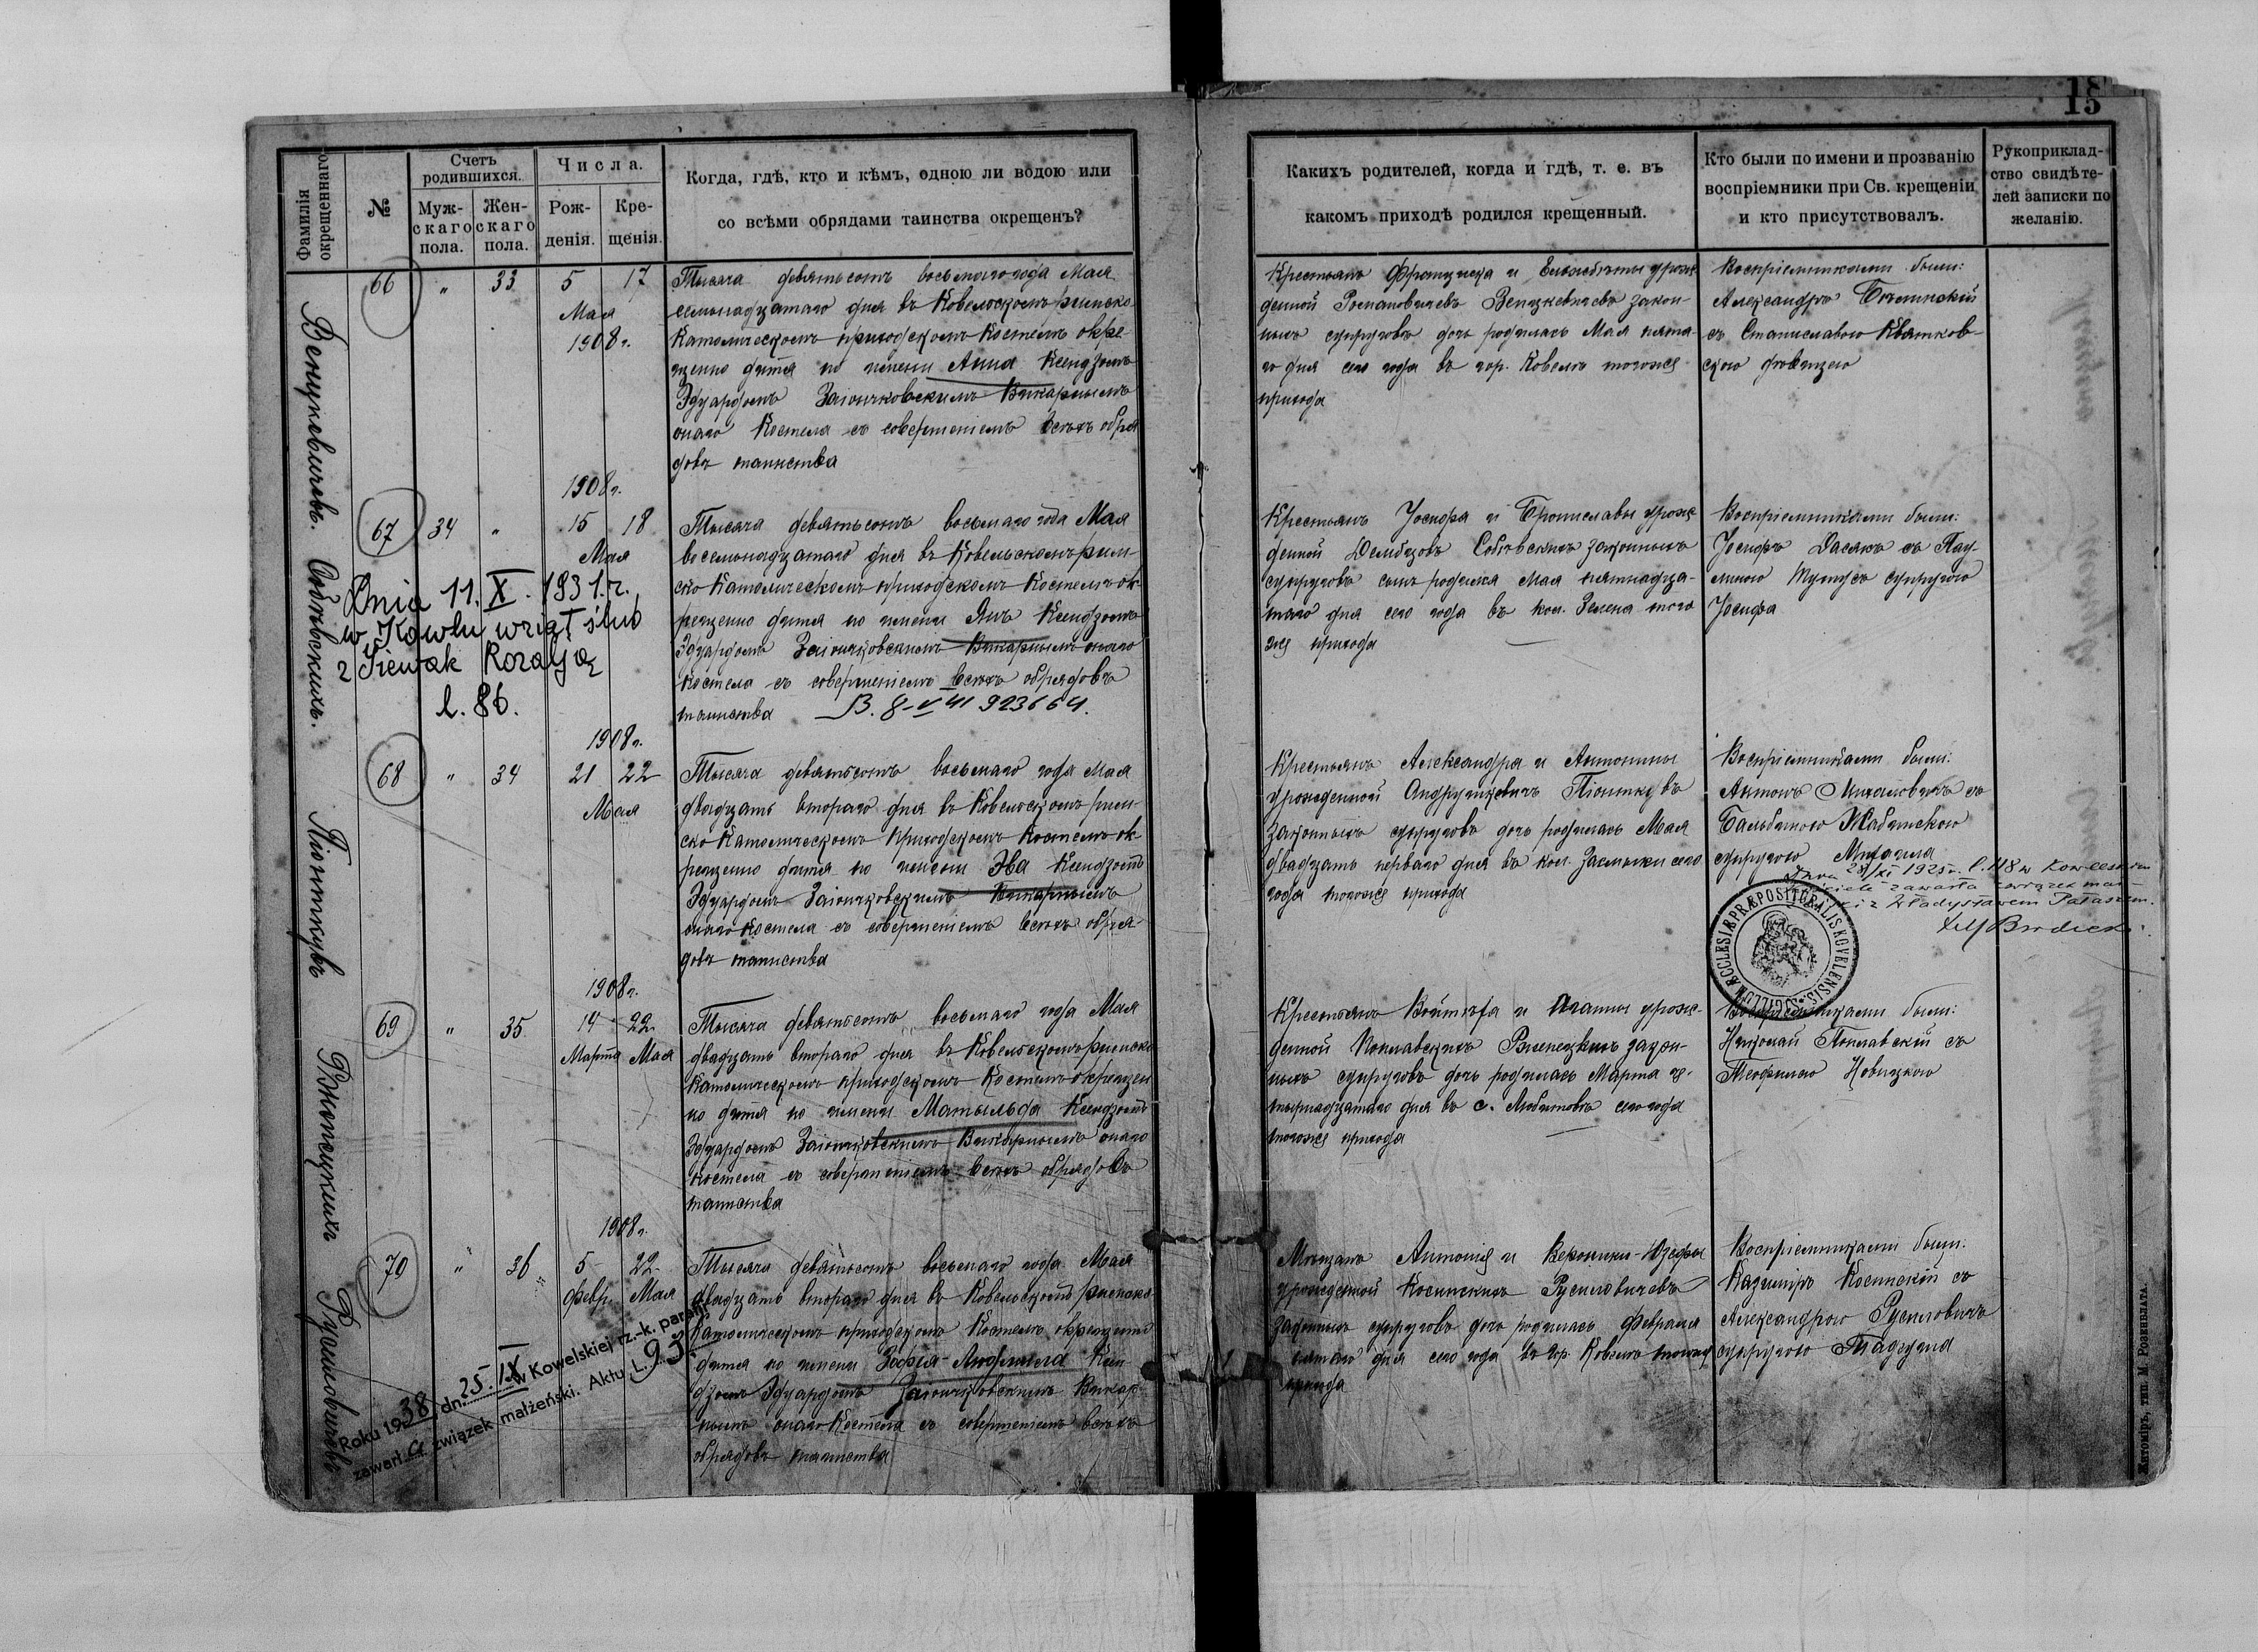 15
Фамилія окрещеннаго
№
Счетъ родившихся.
Муж-скаго пола.
Жен-скаго пола.
Числа.
Рож-денія.
Кре-щенія.
Когда, гдѣ, кто и кѣмъ, одною ли водою или
со всѣми обрядами таинства окрещенъ?
Какихъ родителей, когда и гдѣ, т. е. въ
какомъ приходѣ родился крещенный.
Кто были по имени и прозванію
воспріемники при Св. крещеніи
и кто присутствовалъ.
Рукоприклад-
ство свидѣте-
лей записки по
желанію.
Венцкевичевъ.
66 " 33 5 17
Мая
1908 г.
Тысяча девятьсотъ восьмаго года Мая
семьнадцатаго дня въ Ковельскомъ римско
Католическомъ приходскомъ Костелѣ окре-
щено дитя по имени Анна Ксендзомъ
Эдуардомъ Заіончковскимъ Викарнымъ
онаго Костела съ совершеніемъ всѣхъ обря
довъ таинства
Крестьянъ Франциска и Елисабеты урож-
денной Романовичевъ Венцкевичевъ закон-
ныхъ супруговъ дочь родилась Мая пята-
го дня сего года въ гор. Ковелѣ тогоже
прихода
Воспріемниками были:
Александръ
съ Станиславою Квятков-
скою дѣвицею
Собѣвскихъ.
1908 г.
67 34 " 15 18
Мая
Тысяча девятьсотъ восьмаго года Мая
восемьнадцатаго дня въ Ковельскомъ рим-
ско Католическомъ приходскомъ Костелѣ ок-
рещено дитя по имени Янъ Ксендзомъ
Эдуардомъ Заіончковскимъ Викарнымъ онаго
костела съ совершеніемъ всѣхъ обрядовъ
таинства B. 8-V 41 923664.
Dnia 11. X. 1931. r.
w Kowlu wziął ślub
z Siewak Rozalją
l. 86.
Крестьянъ Іосифа и Брониславы урож-
денной Собѣвскихъ законныхъ
супруговъ сынъ родился Мая пятнадца-
таго дня сего года въ кол. Зелена того
же прихода
Воспріемниками были:
Іосифъ съ Пау-
линою супругою
Іосифа
Піонткувъ
1908 г.
68 " 34 21 22
Мая
Тысяча девятьсотъ восьмаго года Мая
двадцать втораго дня въ Ковельскомъ рим-
ско Католическомъ приходскомъ Костелѣ ок-
рещено дитя по имени Эва Ксендзомъ
Эдуардомъ Заіончковскимъ Викарнымъ
онаго Костела съ совершеніемъ всѣхъ обря-
довъ таинства
Крестьянъ Александра и Антонины
урожденной Андрушкевичъ Піонткувъ
законныхъ супруговъ дочь родилась Мая
двадцать перваго дня въ кол. сего
года тогоже прихода
Воспріемниками были:
Антонъ Михаловичъ съ
Бальбиною Жабинскою
супругою Михаила
Dnia 28/XI 1925 r. l. 118 w Kowelskim
kościele zawarła związek mał-
żeński z Władysławem Pałaszem.
SIGILLUM ECCLESIÆ PRÆPOSITURALIS KOVELENSIS
Ржепецкихъ
1908 г.
69 " 35 14 22
Марта Мая
Тысяча девятьсотъ восьмаго года Мая
двадцать втораго дня въ Ковельскомъ римско
Католическомъ приходскомъ Костелѣ окрещен
но дитя по имени Матыльда Ксендзомъ
Эдуардомъ Заіончковскимъ Викарнымъ онаго
костела съ совершеніемъ всѣхъ обрядовъ
таинства
Крестьянъ Войтѣха и урож-
денной Поплавскихъ Ржепецкихъ закон-
ныхъ супруговъ дочь родилась Марта че-
тырнадцатаго дня въ с. Любитовѣ сего года
тогоже прихода
Воспріемниками были:
Николай Поплавскій съ
Теофилею Новицкою
Русиловичевъ
1908 г.
70 " 36 5 22
Февр. Мая
Тысяча девятьсотъ восьмаго года Мая
двадцать втораго дня въ Ковельскомъ римско
Католическомъ приходскомъ Костелѣ окрещено
дитя по имени Зофія-Людмила Ксен
дзомъ Эдуардомъ Заіончковскимъ Викар-
нымъ онаго Костела съ совершеніемъ всѣхъ
обрядовъ таинства
Roku 1938 dn. 25. IX w Kowelskiej rz.-k. parafji
zawarła związek małżeński. Aktu L. 95.
Мѣщанъ Антонія и Вероники-Юзефы
урожденной Косинскихъ Русиловичевъ
законныхъ супруговъ дочь родилась Февраля
пятаго дня сего года въ гор. Ковелѣ тогоже
прихода
Воспріемниками были:
Казиміръ Косинскій съ
Александрою Русиловичъ
супругою Тадеуша
Житоміръ, тип. М. Роженвата.